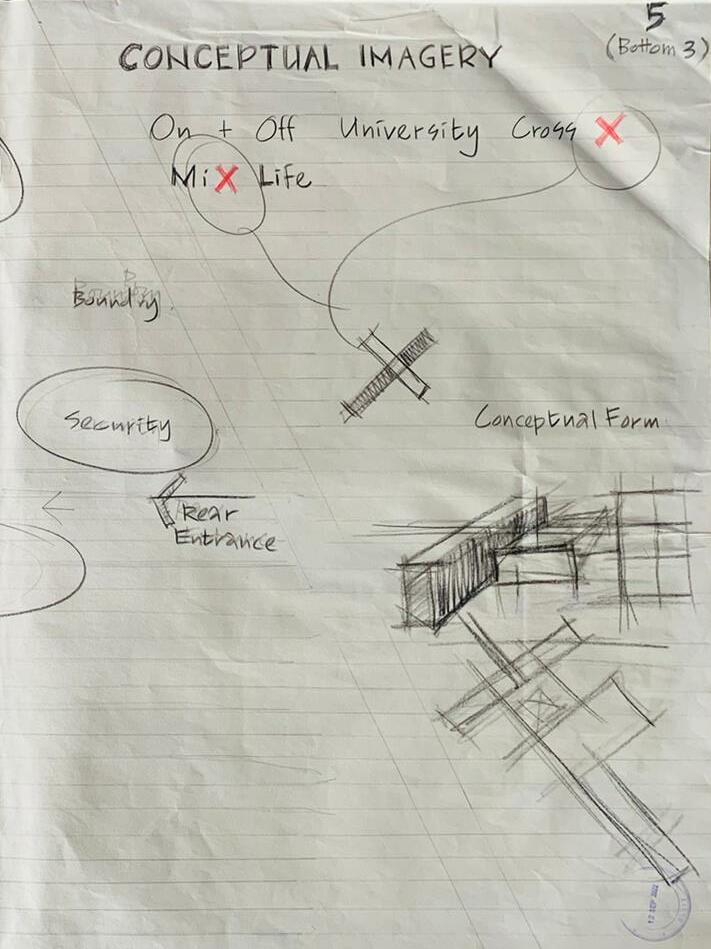 5
(Bottom 3)
CONCEPTUAL IMAGERY
On + Off University Cross X
MiX Life
Boundry
Security
Conceptual Form
Rear
Entrance